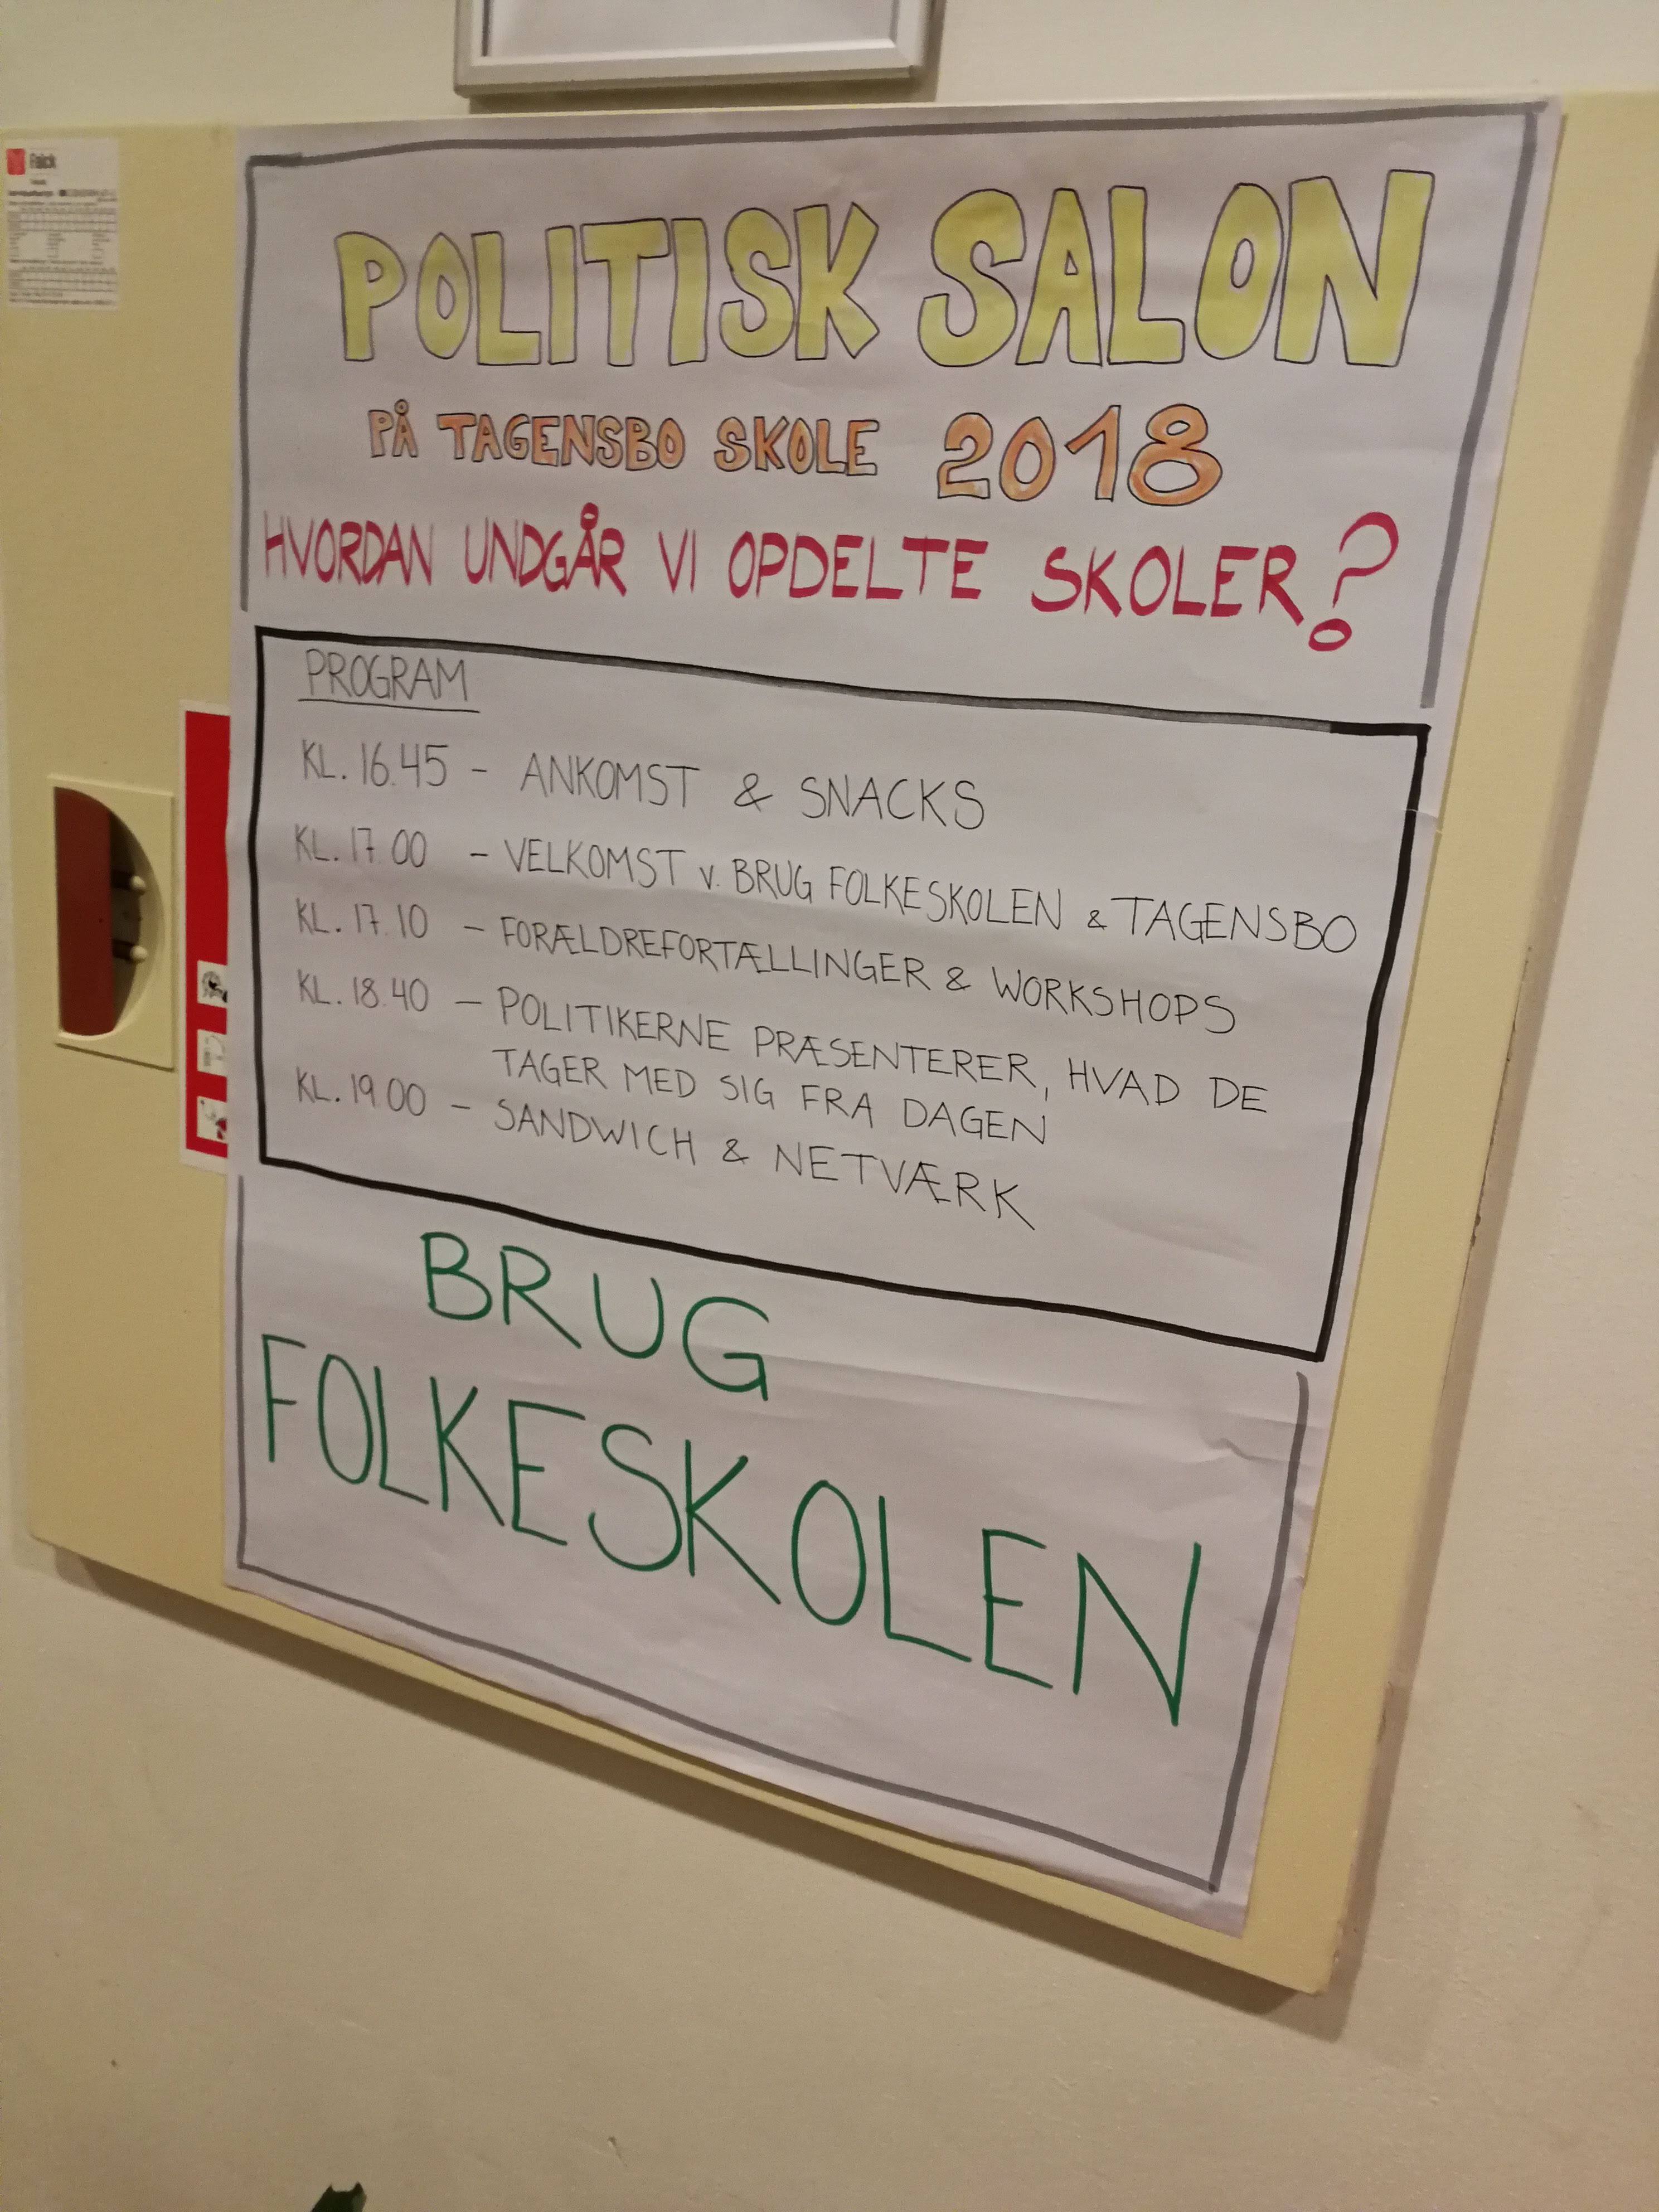 Falck
POLITISK SALON
PÅ TAGENSBO SKOLE 2018
HVORDAN UNDGÅR VI OPDELTE SKOLER?
PROGRAM
KL. 16.45 - ANKOMST & SNACKS
KL. 17.00 - VELKOMST v. BRUG FOLKESKOLEN & TAGENSBO
KL. 17.10 - FORÆLDREFORTÆLLINGER & WORKSHOPS
KL. 18.40 - POLITIKERNE PRÆSENTERER, HVAD DE
TAGER MED SIG FRA DAGEN
KL. 19.00 - SANDWICH & NETVÆRK
BRUG
FOLKESKOLEN